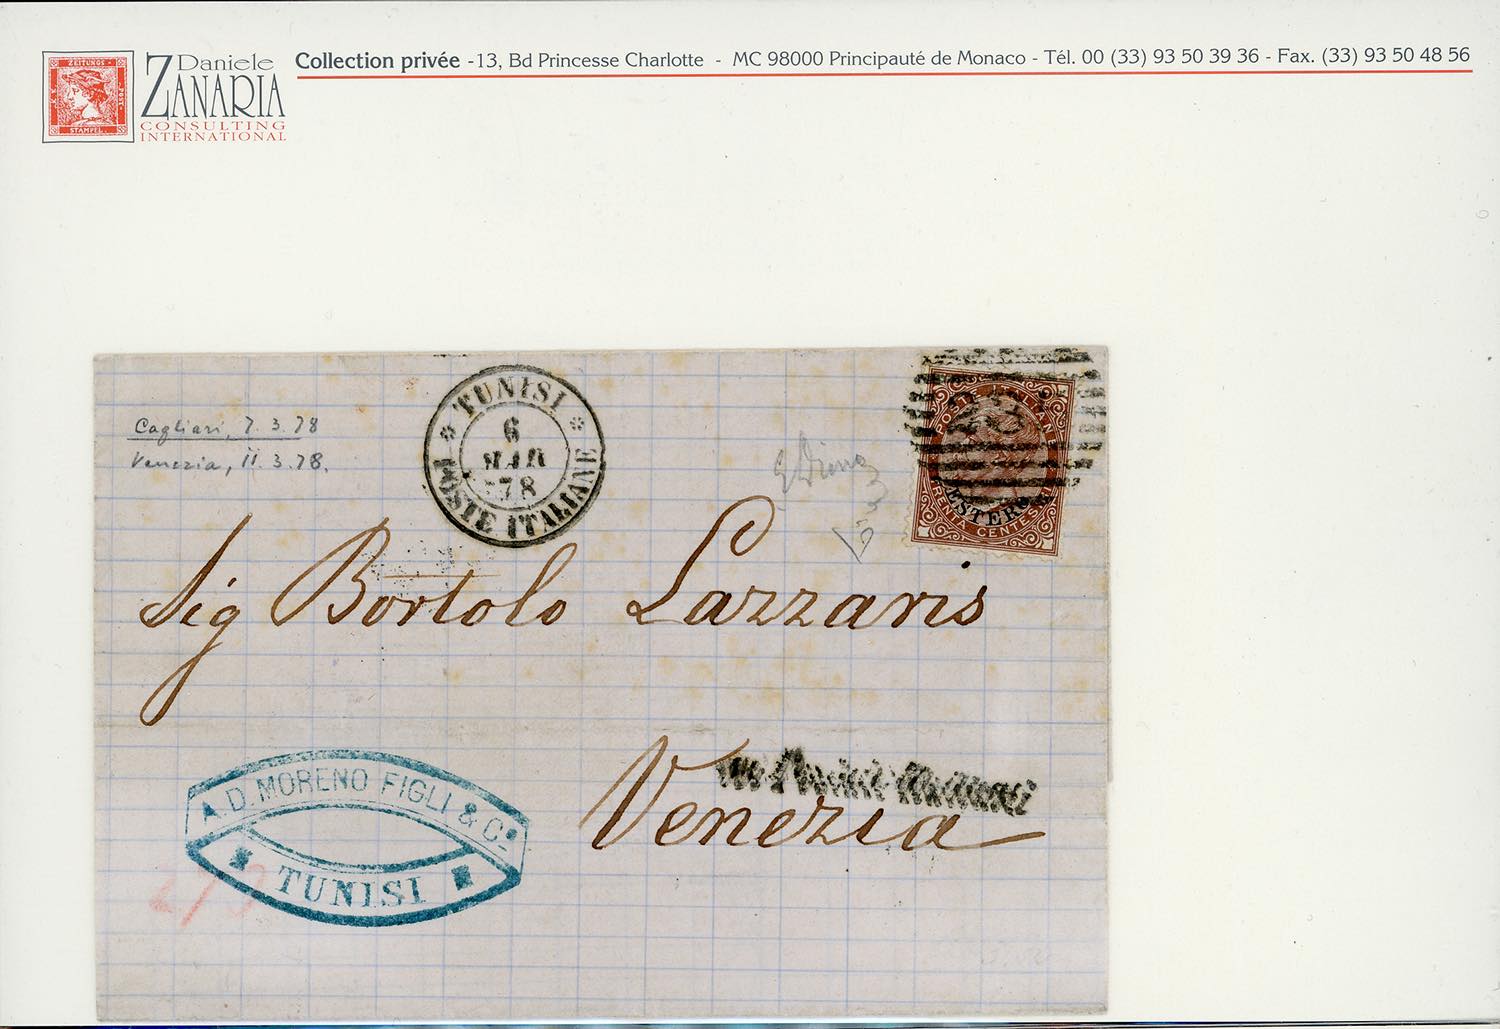 Daniele
ZANARIA
CONSULTING
INTERNATIONAL
ZEITUNGS
POST
STAMPEL
Collection privée -13, Bd Princesse Charlotte - MC 98000 Principauté de Monaco - Tél. 00 (33) 93 50 39 36 - Fax. (33) 93 50 48 56
Cagliari, 7.3.78
Venezia, 11.3.78.
TUNISI
6
MAR
78
POSTE ITALIANE
POSTE ITALIANE
ESTERO
TRENTA CENTESIMI
Sig Bortolo Lazzaris
Venezia
A. D. MORENO FIGLI & Co.
TUNISI